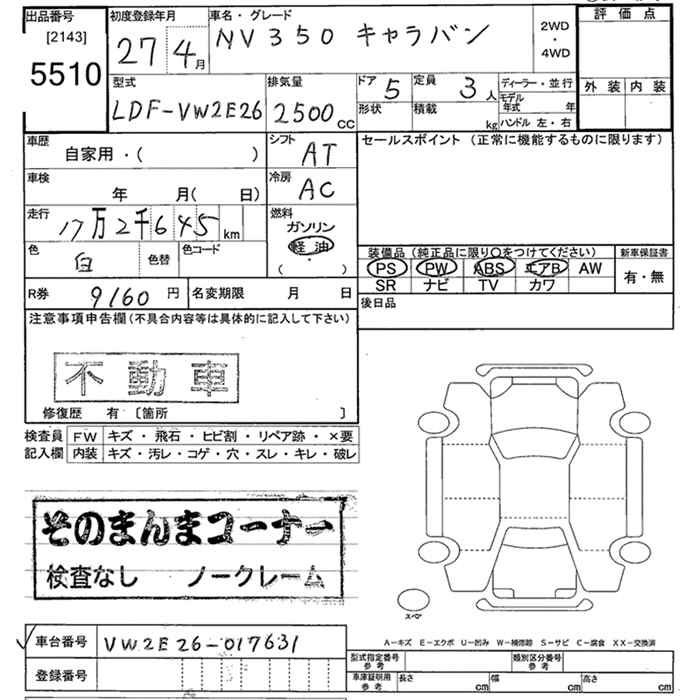 出品番号 初度登録年月 車名・グレード 評価点
[2143] 27年4月 NV350 キャラバン 2WD・4WD
5510 外装 内装
型式 排気量 ドア 5 定員 3人 ディーラー・並行
LDF-VW2E26 2500cc 形状 積載 kg モデル年式 年
ハンドル 左・右
車歴 シフト セールスポイント (正常に機能するものに限ります)
自家用・( ) AT
車検 冷房
年 月( 日) AC
走行 燃料
17万2千645km ガソリン
色 色替 色コード 軽油
白 ・
( )
装備品 (純正品に限り○をつけてください) 新車保証書
PS PW ABS エアB AW 有・無
SR ナビ TV カワ
R券 9160円 名変期限 月 日 後日品
注意事項申告欄(不具合内容等は具体的に記入して下さい)
不動車
修復歴 有 〔箇所 〕
検査員 FW キズ・飛石・ヒビ割・リペア跡・×要
記入欄 内装 キズ・汚レ・コゲ・穴・スレ・キレ・破レ
そのまんまコーナー
検査なし ノークレーム
スペア
A-キズ E-エクボ U-凹み W-補修跡 S-サビ C-腐食 XX-交換済
車台番号 VW2E26-017631
登録番号
型式指定番号 参考 類別区分番号 参考
車庫証明用 参考 長さ cm 幅 cm 高さ cm